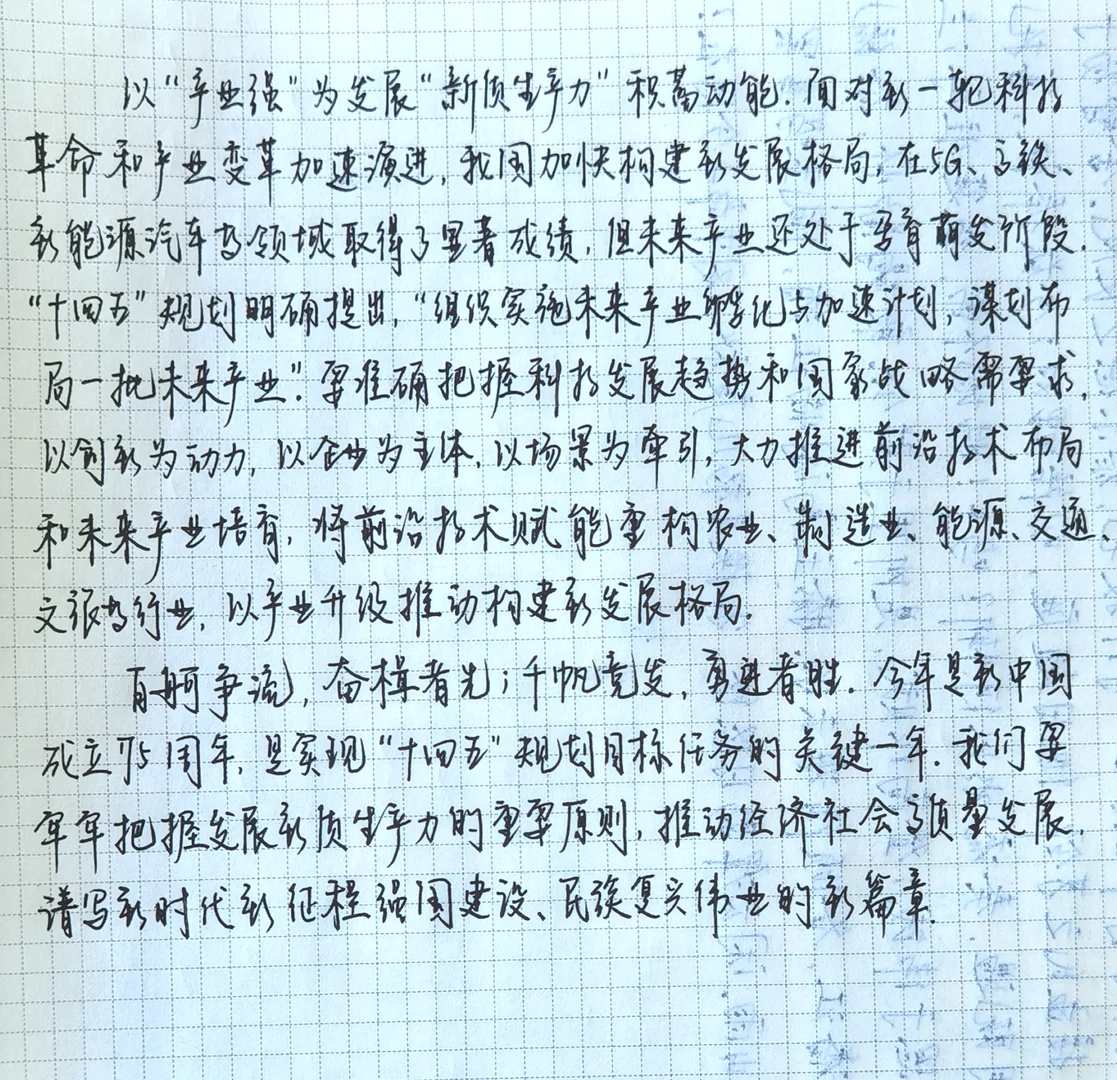 以“产业强”为发展“新质生产力”积蓄动能.面对新一轮科技
革命和产业变革加速演进,我国加快构建新发展格局,在5G、高铁、
新能源汽车等领域取得了显著成绩,但未来产业还处于孕育萌发阶段.
“十四五”规划明确提出,“组织实施未来产业孵化与加速计划,谋划布
局一批未来产业”.要准确把握科技发展趋势和国家战略需要求,
以创新为动力,以企业为主体,以场景为牵引,大力推进前沿技术布局
和未来产业培育,将前沿技术赋能重构农业、制造业、能源、交通、
文旅等行业,以产业升级推动构建新发展格局.
百舸争流,奋楫者先;千帆竞发,勇进者胜.今年是新中国
成立75周年,是实现“十四五”规划目标任务的关键一年.我们要
牢牢把握发展新质生产力的重要原则,推动经济社会高质量发展,
谱写新时代新征程强国建设、民族复兴伟业的新篇章.